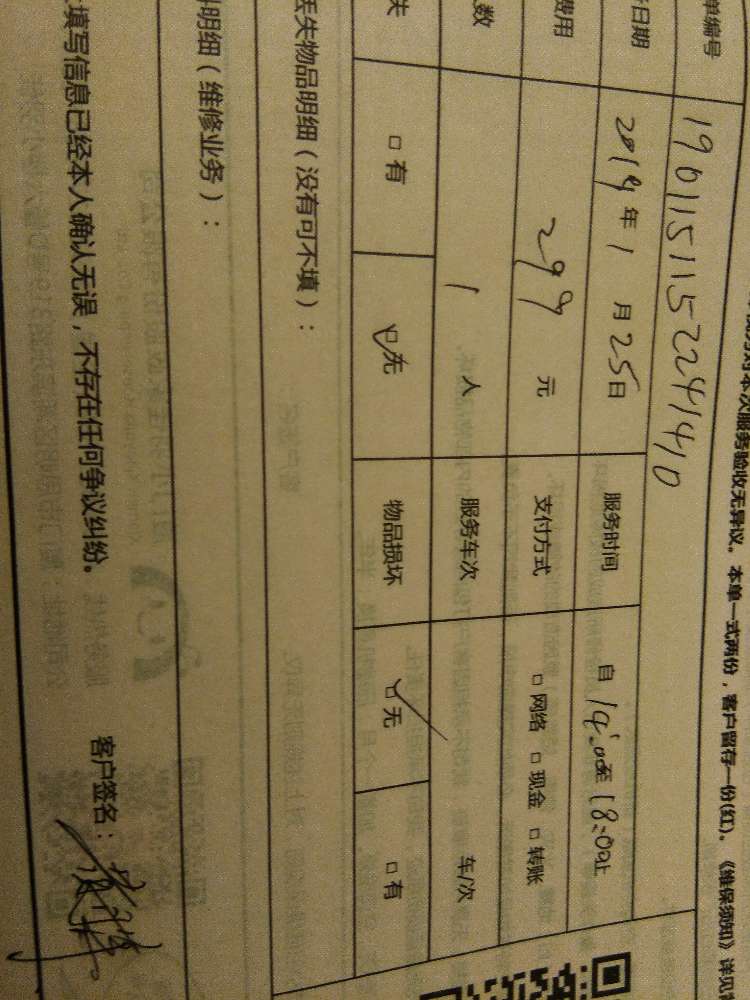 服务对本次服务验收无异议。本单一式两份，客户留存一份(红)。《维保须知》详见
单编号 1901151152241410
日期 2019年1月25日 服务时间 自14:00至18:00止
费用 299元 支付方式 □网络 □现金 □转账
数 1人 服务车次 车/次
失 □有 □无 物品损坏 □无 □有
丢失物品明细（没有可不填）：
明细（维修业务）：
填写信息已经本人确认无误，不存在任何争议纠纷。 客户签名：